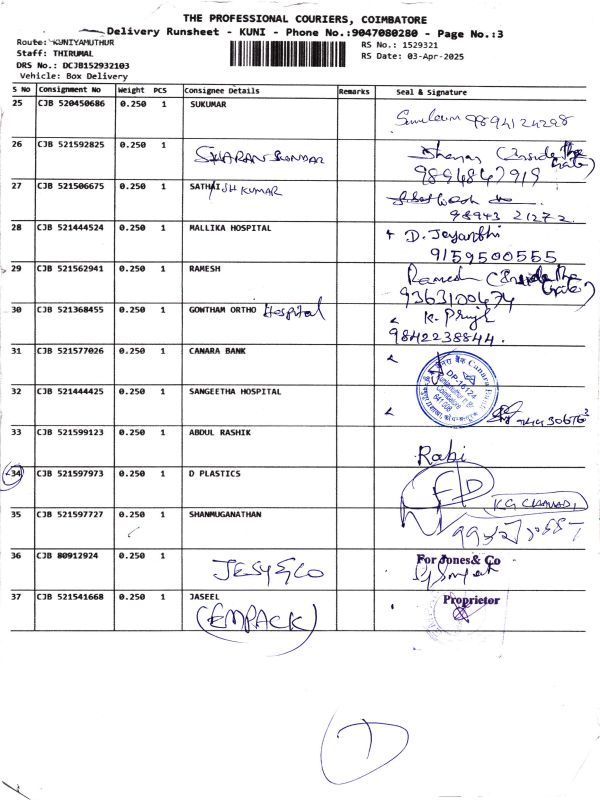 THE PROFESSIONAL COURIERS, COIMBATORE
Delivery Runsheet - KUNI - Phone No.:9047080280 - Page No.:3
Route: KUNIYAMUTHUR
Staff: THIRUMAL
DRS No.: DCJB152932103
Vehicle: Box Delivery
RS No.: 1529321
RS Date: 03-Apr-2025
S No Consignment No Weight PCS Consignee Details Remarks Seal & Signature
25 CJB 520450686 0.250 1 SUKUMAR
9894124298
26 CJB 521592825 0.250 1 SHARAN SUNDAR
(Inside the Gate)
9894847919
27 CJB 521506675 0.250 1 SATHAISH KUMAR
98943 21272
28 CJB 521444524 0.250 1 MALLIKA HOSPITAL D. Jayanthi
9159500555
29 CJB 521562941 0.250 1 RAMESH Ramesh (Inside the Gate)
9363100474
30 CJB 521368455 0.250 1 GOWTHAM ORTHO Hospital
9842238844.
31 CJB 521577026 0.250 1 CANARA BANK
Canara Bank
DP-16124
Coimbatore
32 CJB 521444425 0.250 1 SANGEETHA HOSPITAL
33 CJB 521599123 0.250 1 ABDUL RASHIK
Rabi
34 CJB 521597973 0.250 1 D PLASTICS
35 CJB 521597727 0.250 1 SHANMUGANATHAN
36 CJB 80912924 0.250 1 JESY & CO For Jones& Co
37 CJB 521541668 0.250 1 JASEEL Proprietor
(EMPACK)
1